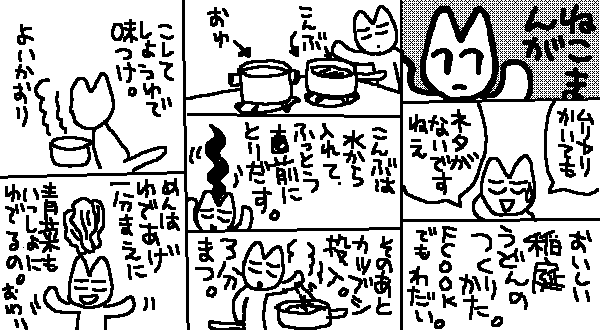 ねこま
んが
ムリヤリ
かいても
ネタが
ないです
ねえ
おいしい
稲庭
うどんの
つくりかた。
FCOOK
でもわだい。
こんぶ
おゆ
こんぶは
水から
入れて、
ふっとう
直前に
とりだす。
そのあと
カツブシ
投入。
3分
まつ。
こして
しょうゆで
味つけ。
よいかおり
めんは
ゆであけ
一分まえに
青菜も
いっしょに
ゆでるの。
おわり